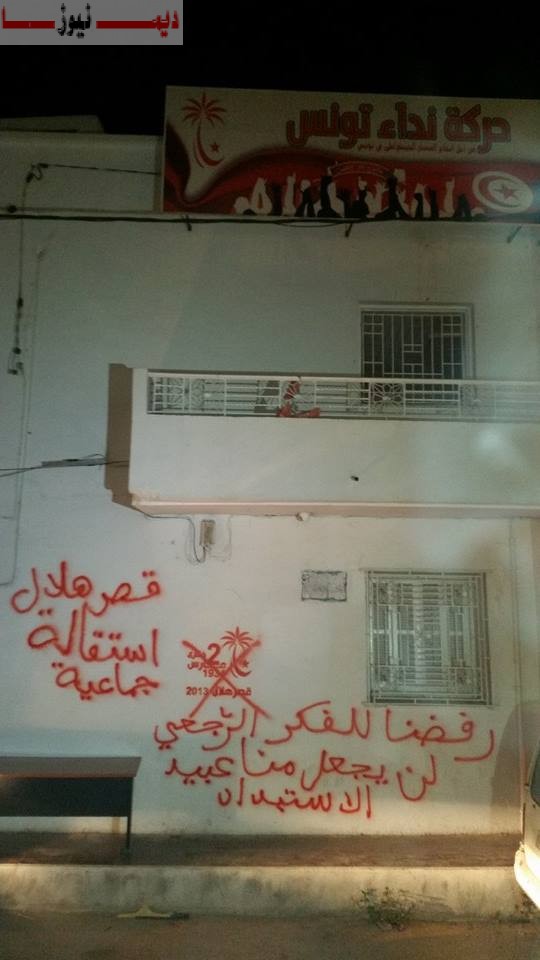 ديمـــا نيوز
حركة نداء تونس
قصر هلال
استقالة
جماعية
2
مارس
قصر هلال 2013
رفضنا للفكر الرّجعي
لن يجعل منا عبيد
الاستبداد